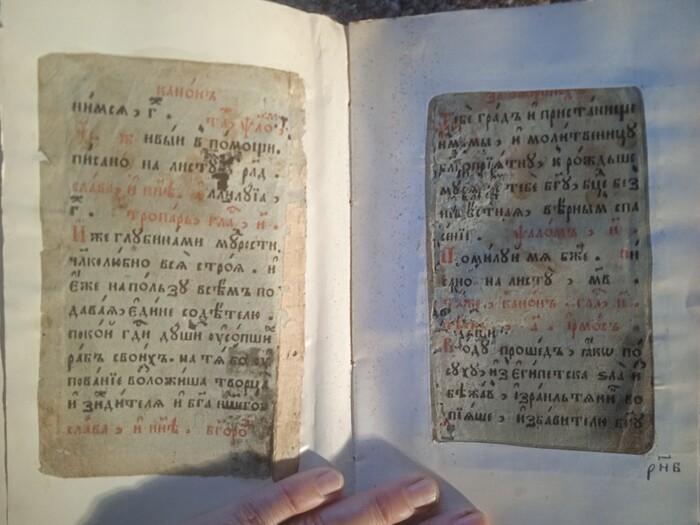 канѡ́нъ
ни́мсѧ, г҃.
ѱало́м
живы́й в по́мощи.
пи́сано на листу̀ рл҃д.
сла́ва, и҆ ны́нѣ. а҆ллилꙋ́їа,
г҃. тропа́рь, гла́, и҃.
И҆́же глꙋбина́ми мꙋ́дрости
чл҃колю́бно всѧ̀ стро́ѧ. и҆
е҆́же на по́льзꙋ всѣ̑мъ по
дава́ѧ, е҆ди́не содѣ́телю.
поко́й гдⷭ҇и дꙋ́ши ᲂу҆со́пши
ра́бъ свои́хъ. на тѧ́ бо ᲂу҆
пова́нїе воложи́ша творца̀
и҆ зижди́телѧ и҆ бг҃а на́шего
сла́ва, и҆ ны́нѣ. бг҃оро
за
Тебѐ гра́дъ и҆ приста́нище
и҆́мамы, и҆ моли́твеницꙋ
бл҃гопрїѧ́тнꙋ, к ро́ждьше
мꙋсѧ и҆с тебѐ бг҃ꙋ, бц҃е без
невѣ́стнаѧ, вѣ́рнымъ спа
се́нїе. ѱало́мъ, н҃.
Поми́лꙋй мѧ бж҃е. пи́
сано на листꙋ̀, мв҃.
та́же, кано́нъ. гла́, и҃.
пѣ́снь, а҃. і҆рмо́съ.
Во́дꙋ проше́дъ, ꙗ҆́кѡ по
сꙋ́хꙋ, и҆з є҆гѵ́петска ѕла̀ и҆
бѣжа́в, і҆зра́ильтѧнинъ во
пїѧ́ше, и҆зба́вителю бг҃ꙋ
рнб